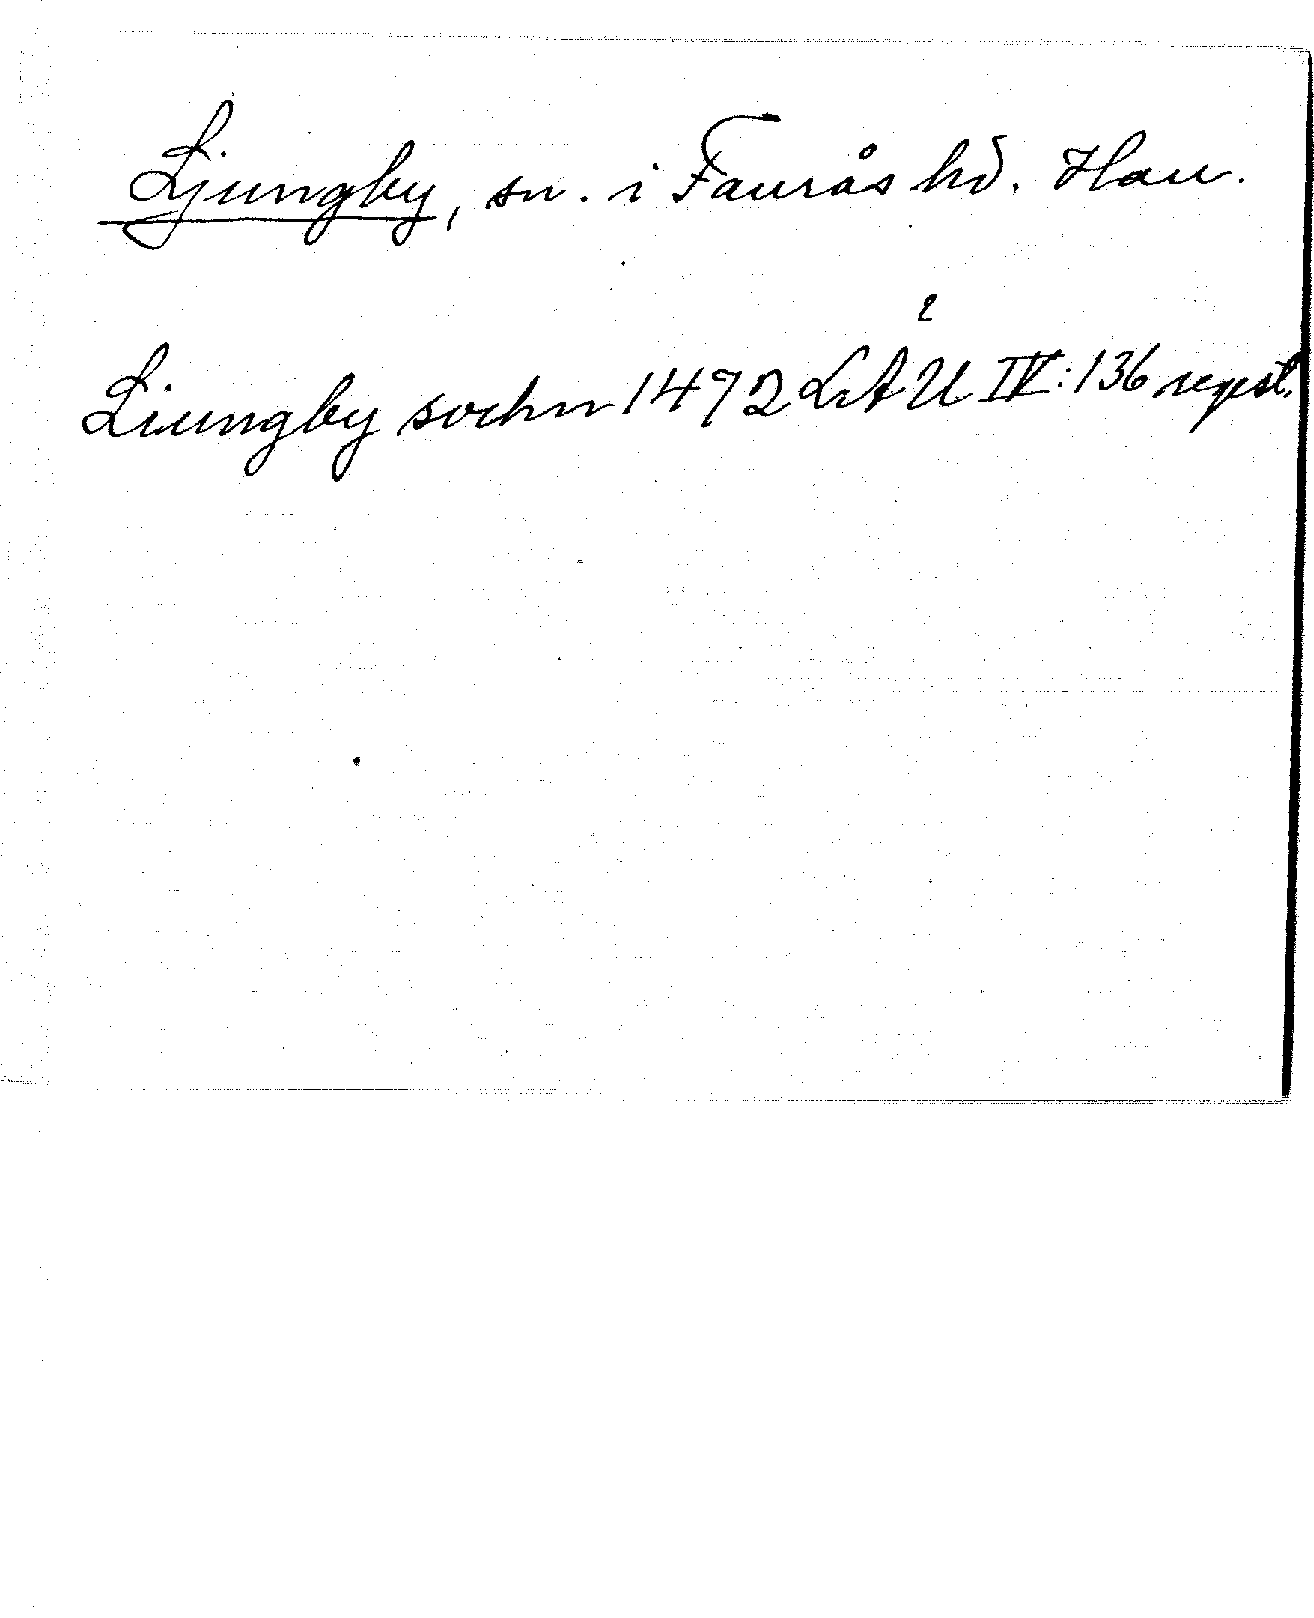 Ljungby, sn. i Faurås hd. Hall.
Liungby sochn 1492 LÅU IV:136 regest.